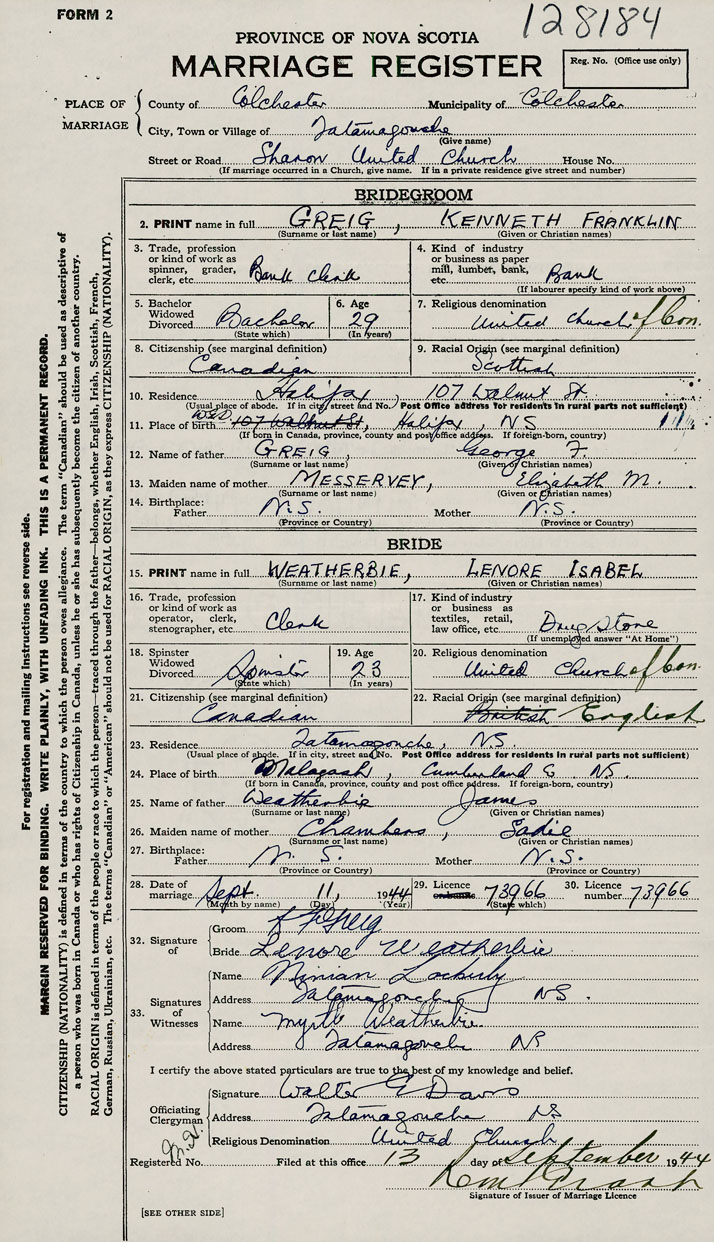 FORM 2
128184
PROVINCE OF NOVA SCOTIA
MARRIAGE REGISTER
Reg. No. (Office use only)
PLACE OF MARRIAGE
County of Colchester Municipality of Colchester
City, Town or Village of Tatamagouche
(Give name)
Street or Road Sharon United Church House No.
(If marriage occurred in a Church, give name. If in a private residence give street and number)
BRIDEGROOM
2. PRINT name in full GREIG, KENNETH FRANKLIN
(Surname or last name) (Given or Christian names)
3. Trade, profession or kind of work as spinner, grader, clerk, etc. Bank Clerk
4. Kind of industry or business as paper mill, lumber, bank, etc. Bank
(If labourer specify kind of work above)
5. Bachelor Widowed Divorced Bachelor (State which)
6. Age 29 (In years)
7. Religious denomination United Church of Can.
8. Citizenship (see marginal definition) Canadian
9. Racial Origin (see marginal definition) Scottish
10. Residence Halifax, 107 Walnut St.
(Usual place of abode. If in city, street and No. Post Office address for residents in rural parts not sufficient)
11. Place of birth 107 Walnut St, Halifax, NS
(If born in Canada, province, county and post office address. If foreign-born, country)
12. Name of father GREIG, George F.
(Surname or last name) (Given or Christian names)
13. Maiden name of mother MESSERVEY, Elizabeth M.
(Surname or last name) (Given or Christian names)
14. Birthplace: Father N.S. Mother N.S.
(Province or Country) (Province or Country)
BRIDE
15. PRINT name in full WEATHERBIE, LENORE ISABEL
(Surname or last name) (Given or Christian names)
16. Trade, profession or kind of work as operator, clerk, stenographer, etc. Clerk
17. Kind of industry or business as textiles, retail, law office, etc. Drug Store
(If unemployed answer "At Home")
18. Spinster Widowed Divorced Spinster (State which)
19. Age 23 (In years)
20. Religious denomination United Church of Can.
21. Citizenship (see marginal definition) Canadian
22. Racial Origin (see marginal definition) British English
23. Residence Tatamagouche, NS.
(Usual place of abode. If in city, street and No. Post Office address for residents in rural parts not sufficient)
24. Place of birth Malagash, Cumberland Co NS.
(If born in Canada, province, county and post office address. If foreign-born, country)
25. Name of father Weatherbie James
(Surname or last name) (Given or Christian names)
26. Maiden name of mother Chambers, Sadie
(Surname or last name) (Given or Christian names)
27. Birthplace: Father N. S. Mother N.S.
(Province or Country) (Province or Country)
28. Date of marriage Sept. 11, 1944
(Month by name) (Day) (Year)
29. Licence or banns 73966 (State which)
30. Licence number 73966
32. Signature of
Groom K F Greig
Bride Lenore Weatherbie
33. Signatures of Witnesses
Name Ninian
Address Tatamagouche NS.
Name Myrtle Weatherbie
Address Tatamagouche NS
I certify the above stated particulars are true to the best of my knowledge and belief.
Officiating Clergyman
Signature Walter G Davis
Address Tatamagouche NS
Religious Denomination United Church
Registered No. Filed at this office 13 day of September 1944
Signature of Issuer of Marriage Licence
[SEE OTHER SIDE]
For registration and mailing instructions see reverse side.
MARGIN RESERVED FOR BINDING. WRITE PLAINLY, WITH UNFADING INK. THIS IS A PERMANENT RECORD.
CITIZENSHIP (NATIONALITY) is defined in terms of the country to which the person owes allegiance. The term "Canadian" should be used as descriptive of
a person who was born in Canada or who has rights of Citizenship in Canada, unless he or she has subsequently become the citizen of another country.
RACIAL ORIGIN is defined in terms of the people or race to which the person—traced through the father—belongs, whether English, Irish, Scottish, French,
German, Russian, Ukrainian, etc. The terms "Canadian" or "American" should not be used for RACIAL ORIGIN, as they express CITIZENSHIP (NATIONALITY).